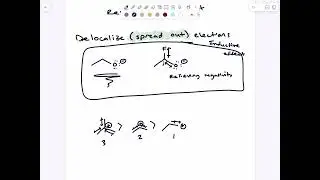 Delocalize (spread out) electrons
Inductive
effect
F
Relieving negativity
> >
3 2 1